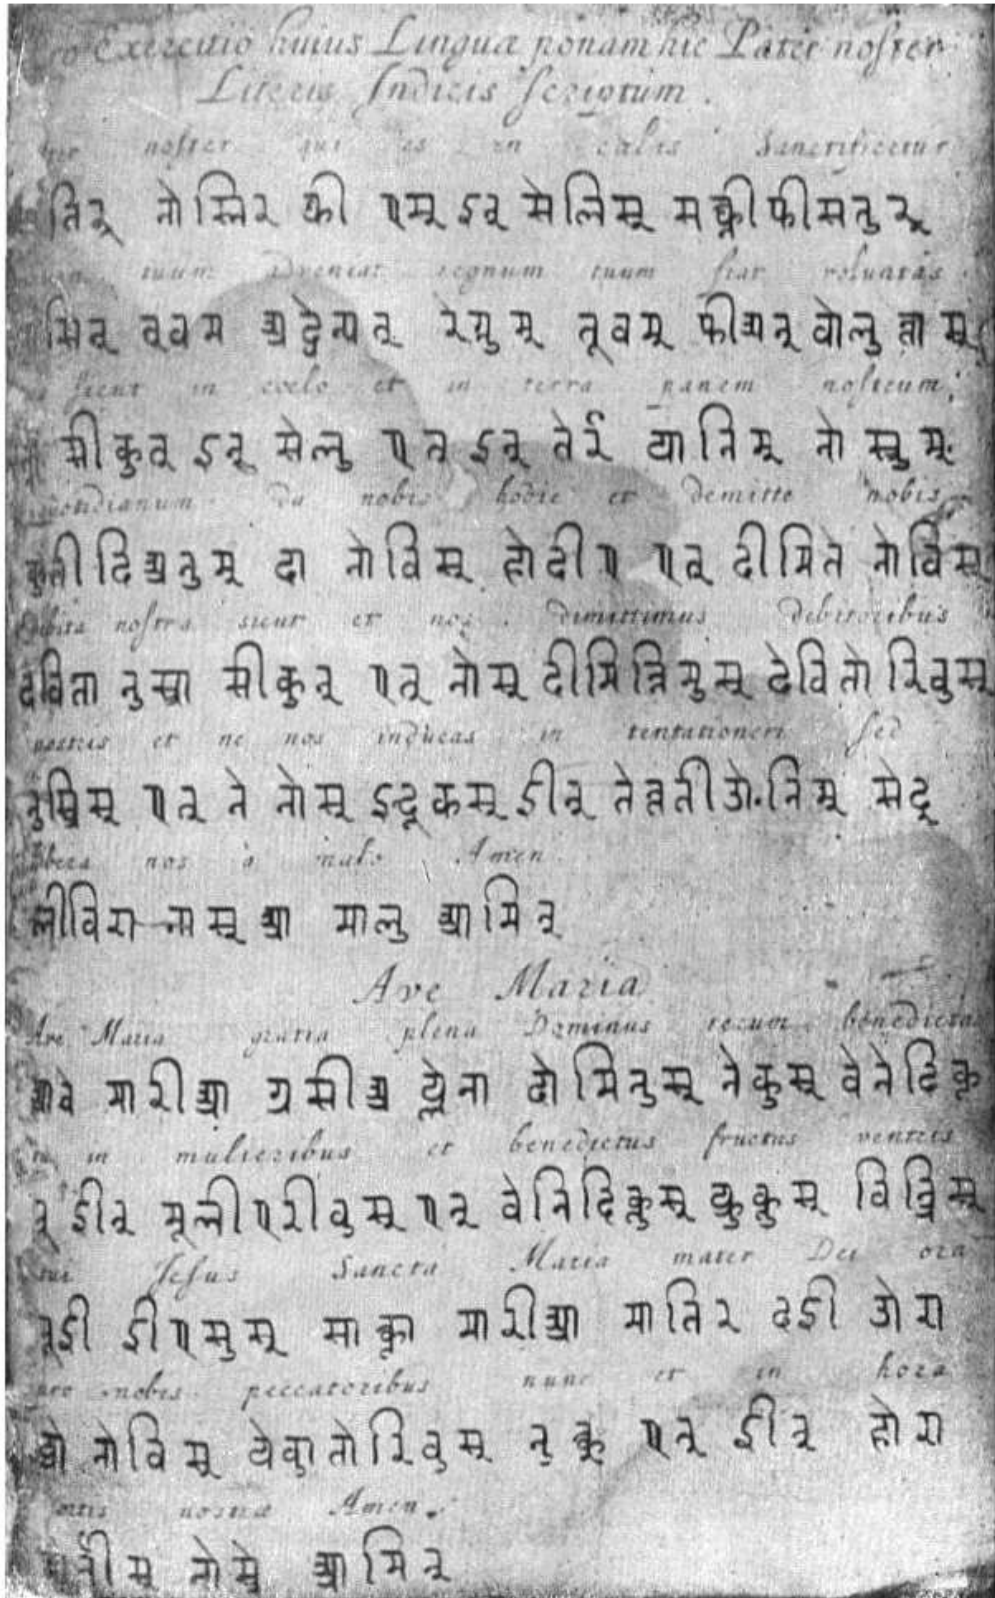 Exercitio huius Linguæ ponam hic Pater noster
Literis Indicis scriptum.
noster qui es in cælis Sanctificetur
तिर् नोस्तिर की एस् इन् सेलिस् सक्तीफीसतुर्
tuum Adveniat regnum tuum fiat voluntas
रेग्नुम् तूवम् फीअत् वोलुन्तास्
sicut in coelo et in terra panem nostrum
सीकुत् इन् सेलु एत् इन् तेर्र पानिम् नोस्त्रुम्
quotidianum da nobis hodie et demitte nobis
कुतीदिअनुम् दा नोविस् होदीए एत् दीमिते नोविस्
debita nostra sicut et nos dimittimus debitoribus
देविता नुस्त्रा सीकुत् एत् नोस् दीमित्तिमुस् देवितोरिवुस्
nostris et ne nos inducas in tentationem sed
नुस्त्रिस् एत् ने नोस् इन्दूकस् ईन् तेन्ततीओनिम् सेद्
libera nos a malo Amen
लीविरा नास् आ मालु आमिन्
Ave Maria
Ave Maria gratia plena Dominus tecum benedicta
आवे मारीआ ग्रसीअ प्लेना दोमिनुस् तेकुस् वेनेदिक्त
tu in mulieribus et benedictus fructus ventris
तु ईन् मूलीएरीवुस् एत् वेनिदिक्तुस् फ्रुक्तुस् विन्त्रिस्
tui Jesus Sancta Maria mater Dei ora
तूई ईएसुस् साक्ता मारीआ मातिर दई ओरा
pro nobis peccatoribus nunc et in hora
प्रो नोविस् पेकातोरिवुस् नुक् एत् ईन् होरा
nostræ Amen.
नोस्त्रे आमिन्